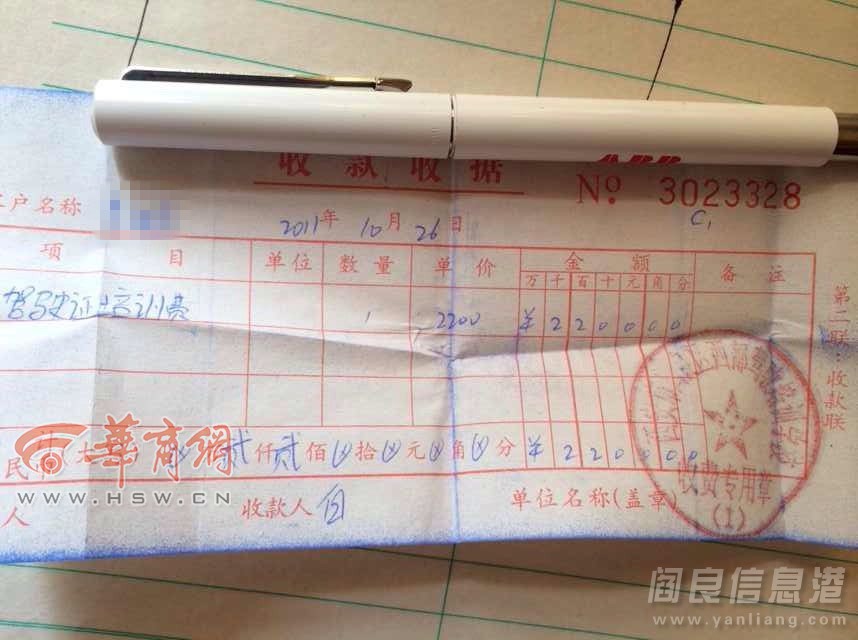 收款收据 № 3023328
户名称
2011年 10月 26日 C1
项目 单位 数量 单价 金额 备注
万 千 百 十 元 角 分
驾驶证培训费 1 2200 ¥220000
第二联:收款联
仟贰佰 拾 元 角 分 ¥220000
人 收款人 单位名称(盖章)
收费专用章
(1)
華商網
WWW.HSW.CN
阎良信息港
www.yanliang.com